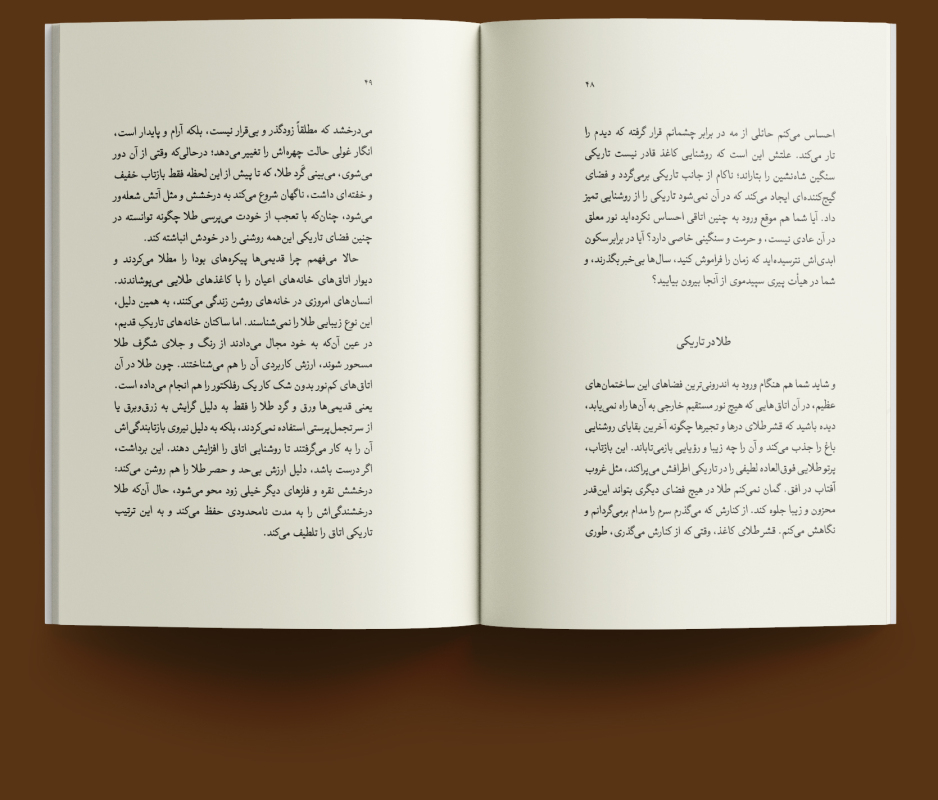 ۴۸
احساس می‌کنم حائلی از مه در برابر چشمانم قرار گرفته که دیدم را
تار می‌کند. علتش این است که روشنایی کاغذ قادر نیست تاریکی
سنگین شاه‌نشین را بتاراند؛ ناکام از جانب تاریکی برمی‌گردد و فضای
گیج‌کننده‌ای ایجاد می‌کند که در آن نمی‌شود تاریکی را از روشنایی تمیز
داد. آیا شما هم موقع ورود به چنین اتاقی احساس نکرده‌اید نور معلق
در آن عادی نیست، و حرمت و سنگینی خاصی دارد؟ آیا در برابر سکون
ابدی‌اش نترسیده‌اید که زمان را فراموش کنید، سال‌ها بی‌خبر بگذرند، و
شما در هیأت پیری سپیدموی از آنجا بیرون بیایید؟
طلا در تاریکی
و شاید شما هم هنگام ورود به اندرونی‌ترین فضاهای این ساختمان‌های
عظیم، در آن اتاق‌هایی که هیچ نور مستقیم خارجی به آن‌ها راه نمی‌یابد،
دیده باشید که قشر طلای درها و تجیرها چگونه آخرین بقایای روشنایی
باغ را جذب می‌کند و آن را چه زیبا و رؤیایی بازمی‌تاباند. این بازتاب،
پرتو طلایی فوق‌العاده لطیفی را در تاریکی اطرافش می‌پراکند، مثل غروب
آفتاب در افق. گمان نمی‌کنم طلا در هیچ فضای دیگری بتواند این‌قدر
محزون و زیبا جلوه کند. از کنارش که می‌گذرم سرم را مدام برمی‌گردانم و
نگاهش می‌کنم. قشر طلای کاغذ، وقتی که از کنارش می‌گذری، طوری
۴۹
می‌درخشد که مطلقاً زودگذر و بی‌قرار نیست، بلکه آرام و پایدار است،
انگار غولی حالت چهره‌اش را تغییر می‌دهد؛ درحالی‌که وقتی از آن دور
می‌شوی، می‌بینی گَرد طلا، که تا پیش از این لحظه فقط بازتاب خفیف
و خفته‌ای داشت، ناگهان شروع می‌کند به درخشش و مثل آتش شعله‌ور
می‌شود، چنان‌که با تعجب از خودت می‌پرسی طلا چگونه توانسته در
چنین فضای تاریکی این‌همه روشنی را در خودش انباشته کند.
حالا می‌فهمم چرا قدیمی‌ها پیکره‌های بودا را مطلا می‌کردند و
دیوار اتاق‌های خانه‌های اعیان را با کاغذهای طلایی می‌پوشاندند.
انسان‌های امروزی در خانه‌های روشن زندگی می‌کنند، به همین دلیل،
این نوع زیبایی طلا را نمی‌شناسند. اما ساکنان خانه‌های تاریکِ قدیم،
در عین آن‌که به خود مجال می‌دادند از رنگ و جلای شگرف طلا
مسحور شوند، ارزش کاربردی آن را هم می‌شناختند. چون طلا در آن
اتاق‌های کم‌نور بدون شک کار یک رفلکتور را هم انجام می‌داده است.
یعنی قدیمی‌ها ورق و گرد طلا را فقط به دلیل گرایش به زرق‌وبرق یا
از سر تجمل‌پرستی استفاده نمی‌کردند، بلکه به دلیل نیروی بازتابندگی‌اش
آن را به کار می‌گرفتند تا روشنایی اتاق را افزایش دهند. این برداشت،
اگر درست باشد، دلیل ارزش بی‌حد و حصر طلا را هم روشن می‌کند:
درخشش نقره و فلزهای دیگر خیلی زود محو می‌شود، حال آن‌که طلا
درخشندگی‌اش را به مدت نامحدودی حفظ می‌کند و به این ترتیب
تاریکی اتاق را تلطیف می‌کند.